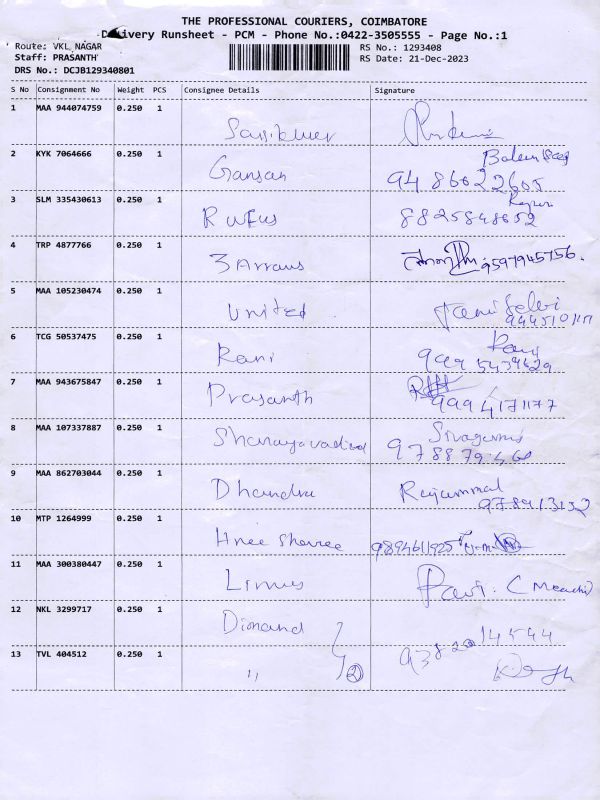 THE PROFESSIONAL COURIERS, COIMBATORE
Delivery Runsheet - PCM - Phone No.:0422-3505555 - Page No.:1
Route: VKL NAGAR
Staff: PRASANTH
DRS No.: DCJB129340801
RS No.: 1293408
RS Date: 21-Dec-2023
S No Consignment No Weight PCS Consignee Details Signature
1 MAA 944074759 0.250 1
2 KYK 7064666 0.250 1 Gansan
94 86022605
3 SLM 335430613 0.250 1 Rufus
8825848652
4 TRP 4877766 0.250 1 3 Arrows 9597945756.
5 MAA 105230474 0.250 1 United Tamil Selvi
6 TCG 50537475 0.250 1 Rani Rani
7 MAA 943675847 0.250 1 Prasanth
999 4171177
8 MAA 107337887 0.250 1 Sivagami
9 MAA 862703044 0.250 1 Rajammal
10 MTP 1264999 0.250 1 9894611925
11 MAA 300380447 0.250 1
12 NKL 3299717 0.250 1 Dimand
13 TVL 404512 0.250 1 ,, 2